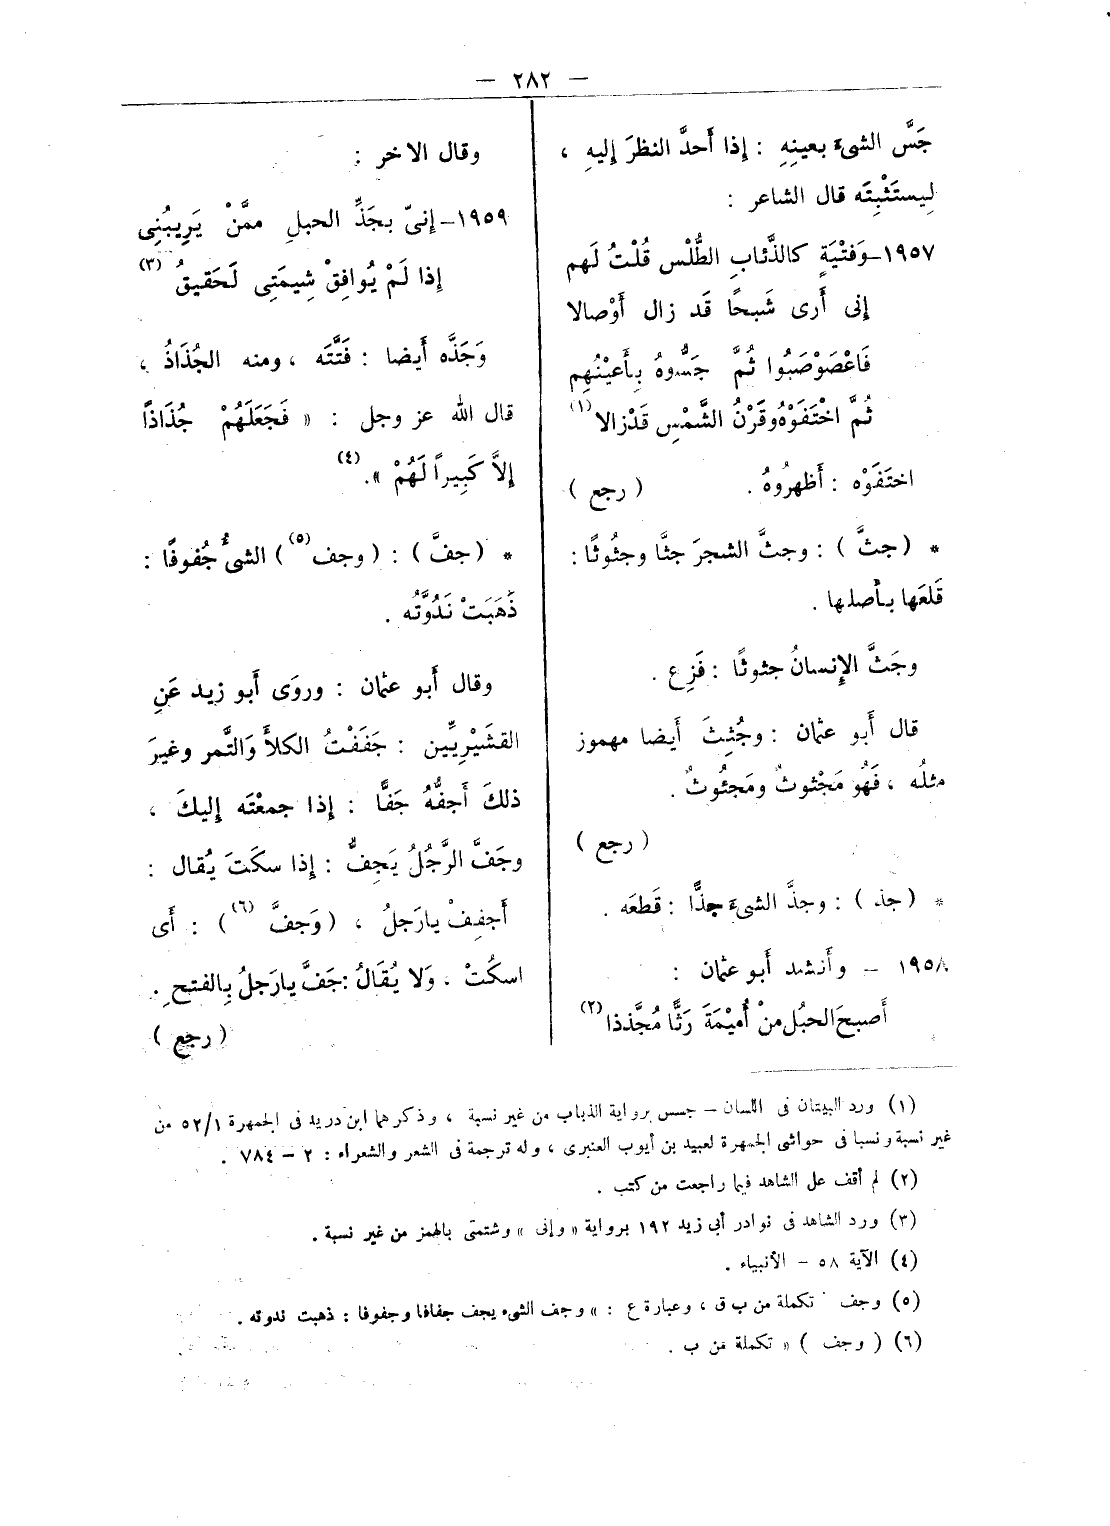 — ٢٨٢ —
جَسَّ الشىءَ بعينِهِ : إذا أَحدَّ النظرَ إليهِ ،
لِيستَثْبِتَه قال الشاعر :
١٩٥٧ـ وَفتْيَةٍ كالذَّئابِ الطُّلْس قُلْتُ لَهم
إنى أَرى شَبحًا قَد زال أَوْصالا
فَاعْصَوْصَبُوا ثُمَّ جَسُّوهُ بِأَعيْنُهِم
ثُمَّ اخْتَفَوْهُ وقَرْنُ الشَّمْسِ قَدْزالا (١)
اختَفَوْه : أَظهرُوهُ . ( رجع )
* (جثَّ ) : وجثَّ الشجرَ جثَّا وجثُوثًا :
قَلعَها بأَصلها .
وجَثَّ الإِنسانُ جثوثًا : فَزِع .
قال أَبو عثمان : وجُئِثَ أَيضا مهموز
مثلُه ، فَهُو مَجْثوثٌ ومَجئُوثٌ .
( رجع )
* (جذ ) : وجذَّ الشىءَ جذًّا : قَطعَه .
١٩٥٨ – وأَنشد أَبو عثمان :
أَصبحَ الحبُل منْ أُميْمَةَ رَثًّا مُجَّذذا (٢)
وقال الاخر :
١٩٥٩ـ إنىّ بجَذِّ الحبلِ ممَّنْ يَرِيبُنِى
إذا لَمْ يُوافِقْ شِيمَتِى لَحَقيقُ (٣)
وَجَذَّه أَيضا : فَتَّتَه ، ومنه الجُذَاذُ ،
قال الله عز وجل : « فَجَعَلَهُمْ جُذَاذًا
إلاَّ كَبِيراً لَهُمْ ». (٤)
* (جفَّ ) : (وجف (٥)) الشىُّ جُفوفًا :
ذَهَبَتْ نَدُوَّتُه .
وقال أَبو عثمان : وروَى أَبو زيد عَنِ
القشَيْرِيِّين : جَفَفْتُ الكلأَ وَالتَّمر وغيرَ
ذلكَ أَجفُّهُ جَفًّا : إذا جمعْتَه إليكَ ،
وجَفَّ الرَّجُلُ يَجِفُّ : إذا سكَتَ يُقال :
أَجفِفْ يارَجلُ ، (وَجفَّ (٦)) : أَى
اسكُتْ ، وَلا يُقَالُ : جَفَّ يارَجلُ بِالفتحِ .
( رجع )
(١) ورد البيتان فى اللسان – جسس برواية الذباب من غير نسبة ، وذكرهما ابن دريد فى الجمهرة ٥٢/١ من
غير نسبة ونسبا فى حواشى الجمهرة لعبيد بن أيوب العنبرى ، وله ترجمة فى الشعر والشعراء : ٢ – ٧٨٤ .
(٢) لم أقف على الشاهد فيما راجعت من كتب .
(٣) ورد الشاهد فى نوادر أبى زيد ١٩٢ برواية « وإنى » وشئمتى بالهمز من غير نسبة .
(٤) الآية ٥٨ – الأنبياء .
(٥) وجف تكملة من ب ق ، وعبارة ع : » وجف الشىء يجف جفافا وجفوفا : ذهبت ندوته .
(٦) ( وجف ) « تكملة من ب .